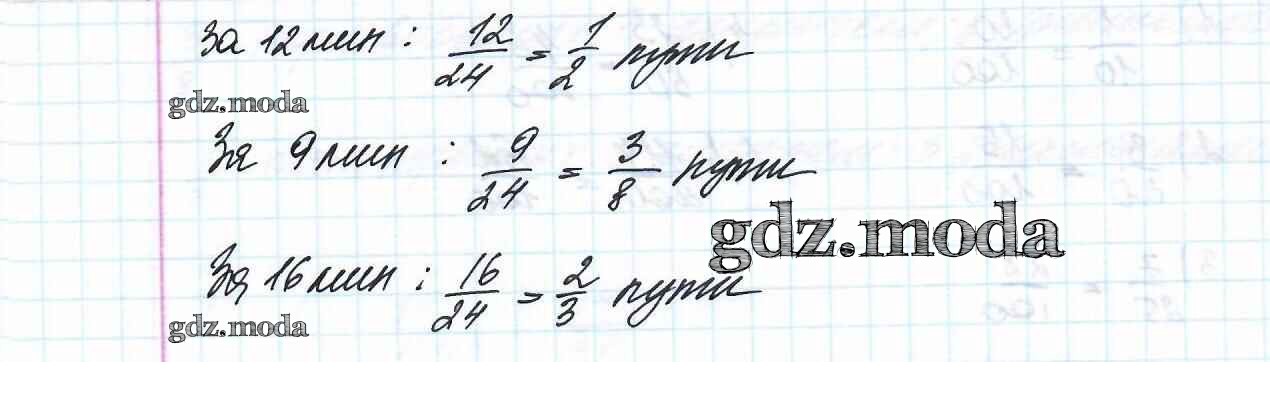 За 12 мин : 12/24 = 1/2 пути
gdz.moda
За 9 мин : 9/24 = 3/8 пути
gdz.moda
За 16 мин : 16/24 = 2/3 пути
gdz.moda